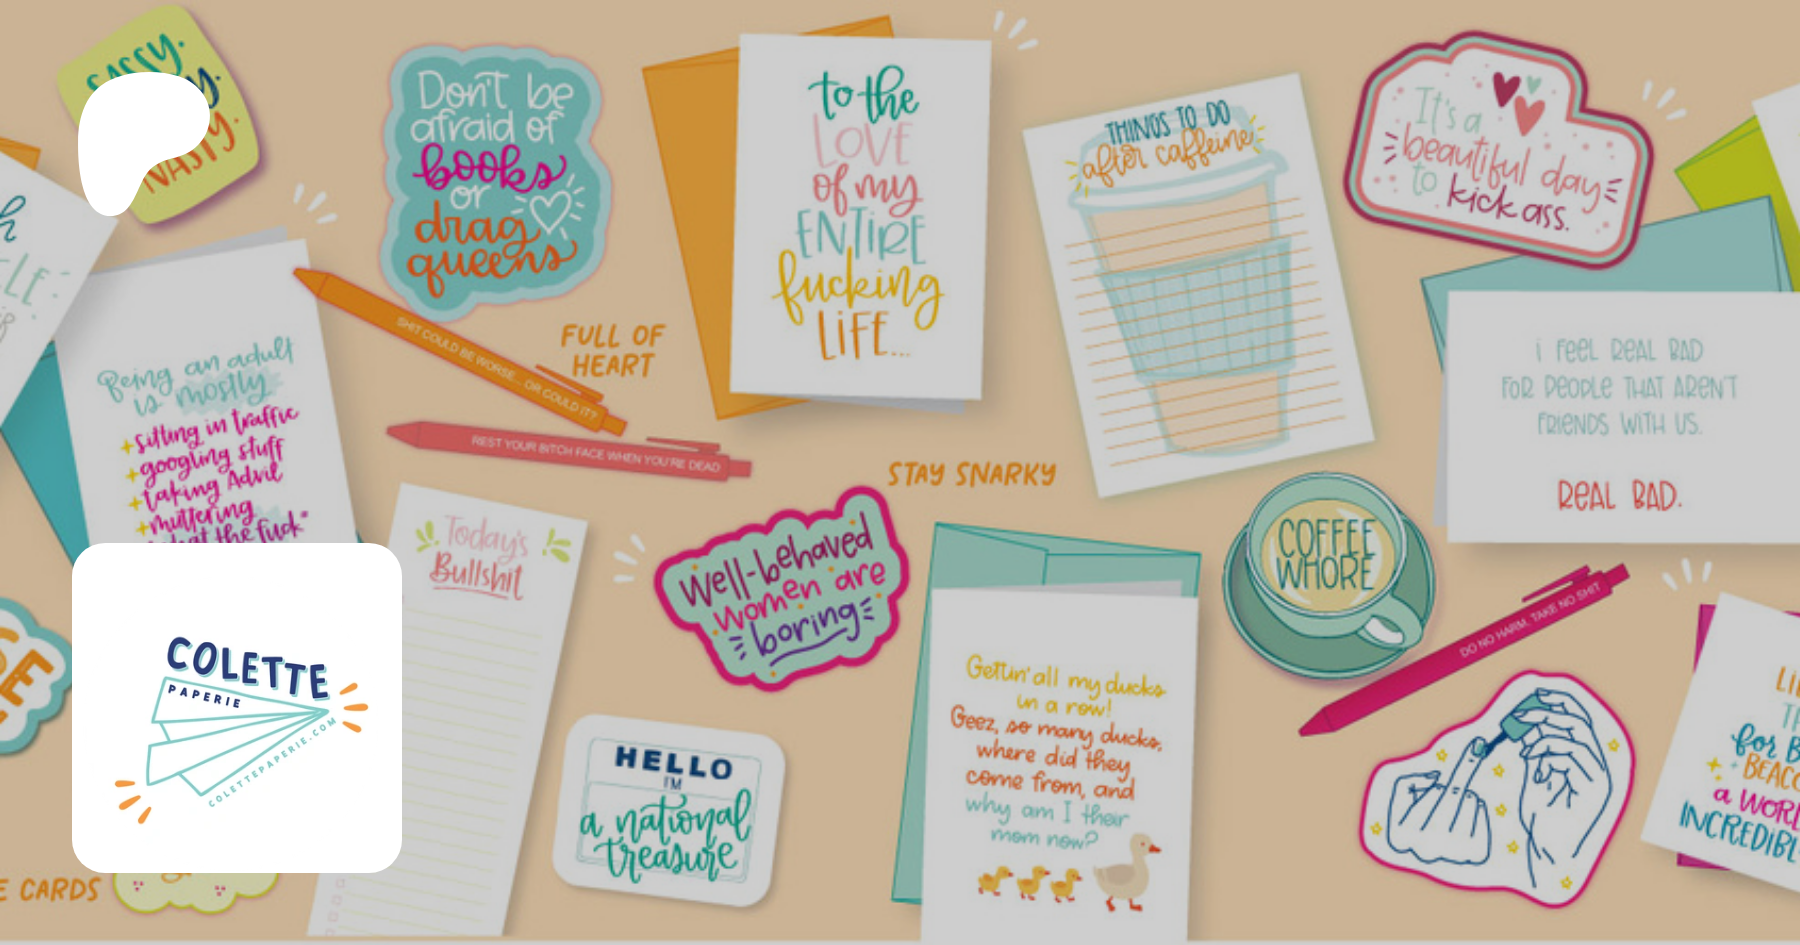 SASSY.
NASTY.
Don't be
afraid of
books
or
drag
queens
to the
LOVE
of my
ENTIRE
fucking
LIFE...
THINGS TO DO
after caffeine
It's a
beautiful day
to kick ass.
Being an adult
is mostly
sitting in traffic
googling stuff
taking Advil
muttering
what the fuck"
SHIT COULD BE WORSE... OR COULD IT?
FULL OF
HEART
REST YOUR BITCH FACE WHEN YOU'RE DEAD
STAY SNARKY
I FEEL REAL BAD
FOR PEOPLE THAT AREN'T
FRIENDS WITH US.
REAL BAD.
Today's
Bullshit
Well-behaved
women are
boring
COFFEE
WHORE
DO NO HARM, TAKE NO SHIT
COLETTE
PAPERIE
COLETTEPAPERIE.COM
HELLO
I'M
a national
treasure
Gettin' all my ducks
in a row!
Geez, so many ducks,
where did they
come from, and
why am I their
mom now?
for B
BEACO
a WORL
INCREDIBL
E CARDS